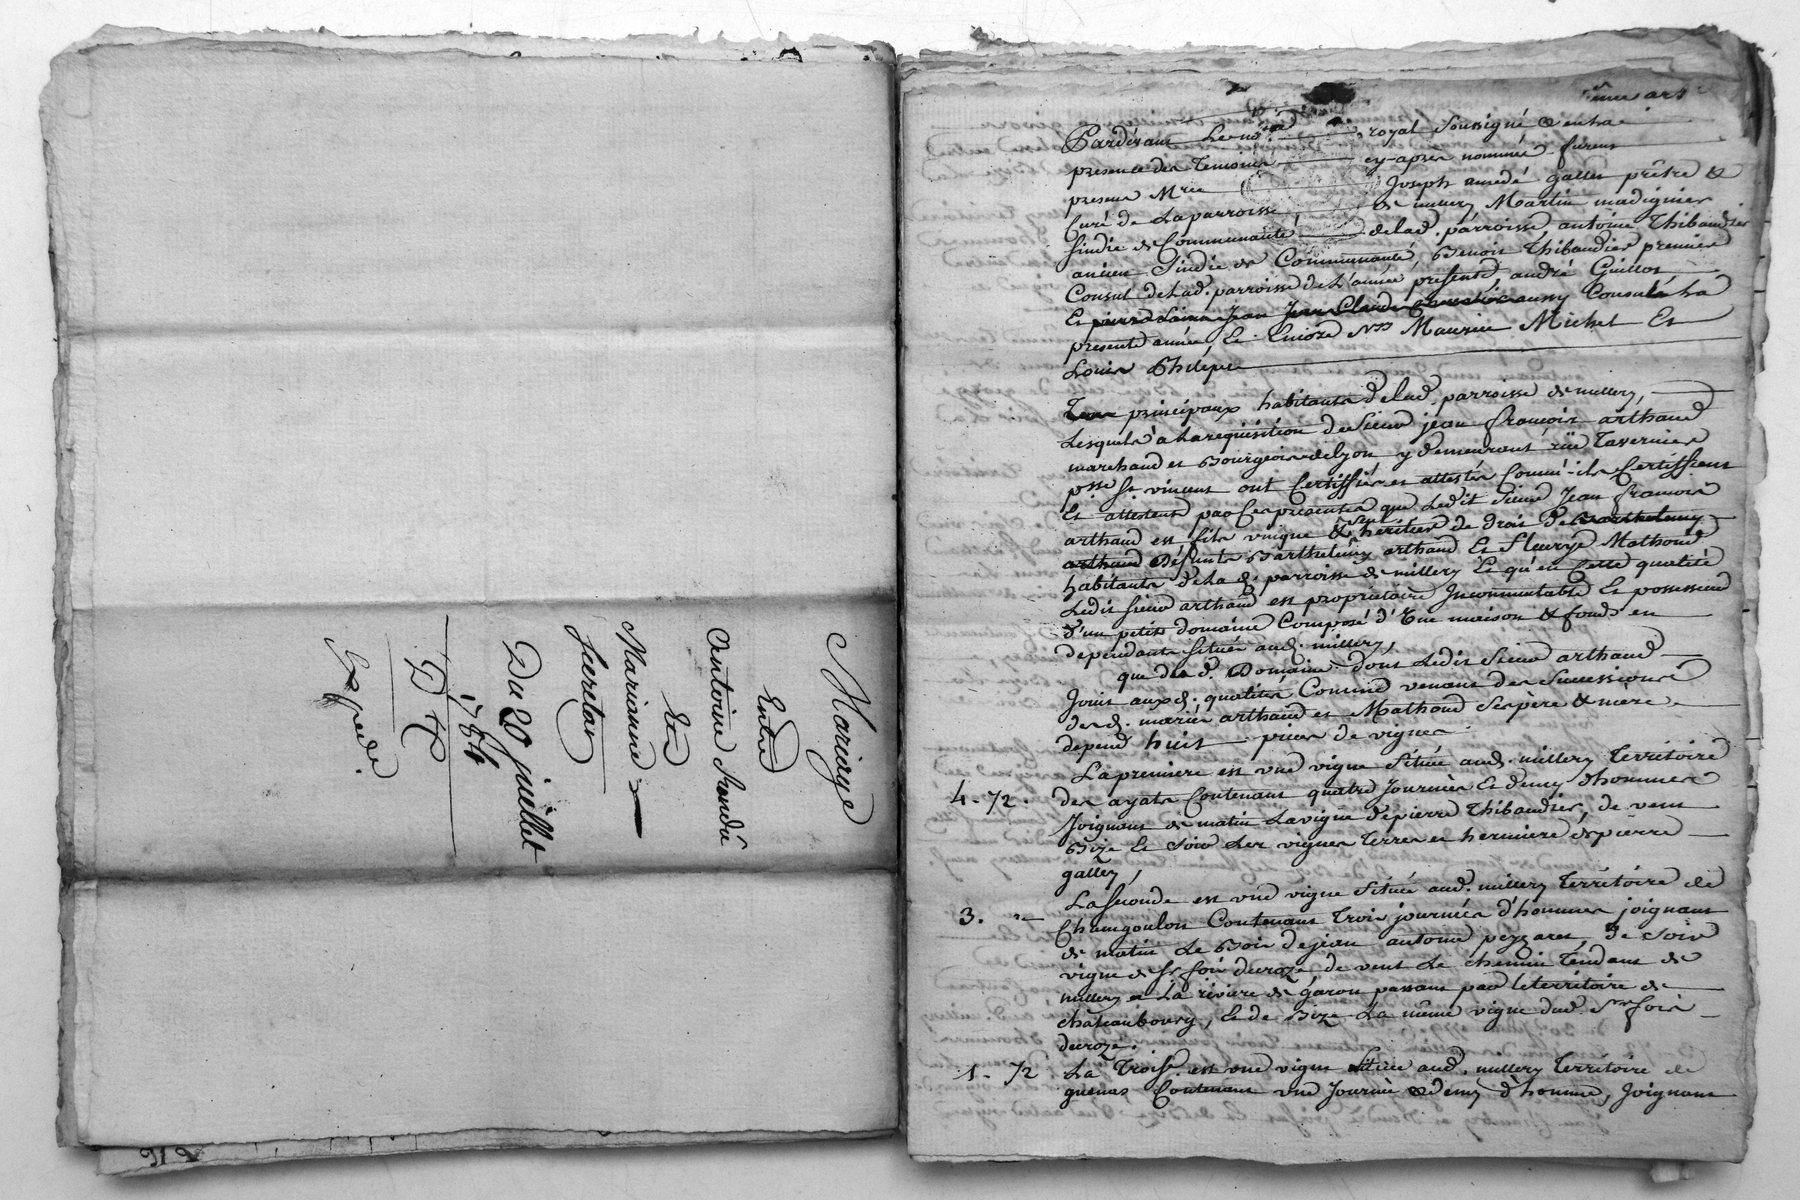 Mariage
Entre
Antoine
Et
Marianne
Du 20 juillet
1786
D H
Exped.
Pardevant Le no.re royal Soussigné & en la
presence des Temoins cy-apres nommés furent
presens M.re Joseph amedé gallet prêtre &
Curé de La parroisse de millery Martin madiginier
sindic de Communauté de lad. parroisse, antoine Thibaudier
ancien Sindic de Communauté, Benoit Thibaudier premier
Consul de lad. parroisse de L'année presente, andré Guillot
Et Jean Claude aussy Consul La
presente année, Et Encore S.rs Maurice Michel Et
Louis Phelipe
Tous principaux habitants de lad. parroisse de millery,
Lesquels à La requisition de Sieur jean francois arthaud
marchand et Bourgeois de lyon y demeurant rüe Tavernier
p.sse St vincent ont Certiffié et attesté Comme ils Certiffient
Et attestent par Ces presentes que Ledit Sieur Jean francois
arthaud est fils unique & seul heritier de droit de Barthelemy
arthaud Défunts Barthelemy arthaud Et fleurye Mathoud
habitants de La d. parroisse de millery Et qu'en Cette qualité
Ledit sieur arthaud est proprietaire Incommutable Et possesseur
d'un petit domaine Composé d'Une maison & fonds en
dependants situés aud. millery,
que du d. Domaine dont Ledit Sieur arthaud
Jouit auxd. qualités, Comme venant des Successions
des d. mariés arthaud et Mathoud Ses père & mère
depend huit pieces de vignes
La premiere est une vigne Située aud. millery Territoire
4. 1/2. des ayats Contenant quatre Journées Et demy d'hommes
Joignant de matin La vigne de pierre Thibaudier, de vent
Bize Et Soir Les vignes Terres et hermiere de pierre
gallet,
La seconde est une vigne Située aud. millery Territoire de
3. " Champoulon Contenant Trois journées d'hommes joignant
de matin Le Bois de jean antoine peyzaret, de Soir
vigne de Sr foin duroze, de vent Le chemin Tendant de
millery a La riviere de garon passant par le territoire de
chateaubourg, Et de Bize La même vigne dud. Sr foin
duroze.
1. 1/2 La Trois.e est une vigne Située aud. millery Territoire de
Contenant une Journée & demy d'homme, Joignant